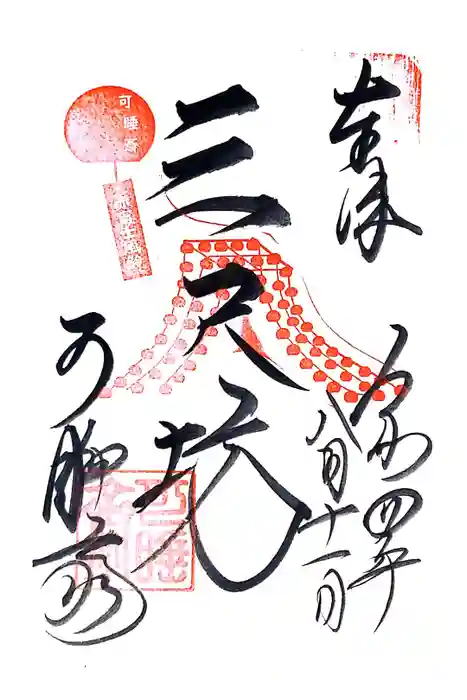 奉拝
令和四年
八月十一日
三尺坊
可睡斎
可睡斎